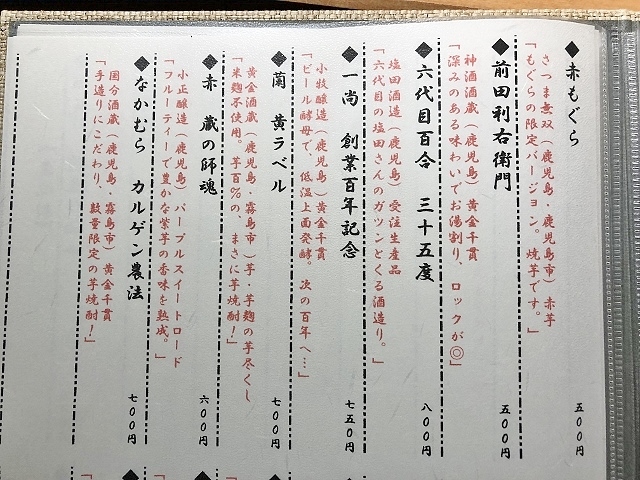 ◆赤もぐら 五００円
さつま無双（鹿児島・鹿児島市）赤芋
「もぐらの限定バージョン。焼芋です。」
◆前田利右衛門 五００円
神酒酒蔵（鹿児島）黄金千貫
「深みのある味わいでお湯割り、ロックが◎」
◆六代目百合 三十五度 八００円
塩田酒造（鹿児島）受注生産品
「六代目の塩田さんのガツンとくる酒造り。」
◆一尚 創業百年記念 七五０円
小牧醸造（鹿児島）黄金千貫
「ビール酵母で、低温上面発酵。次の百年へ…」
◆蘭 黄ラベル 七００円
黄金酒蔵（鹿児島・霧島市）芋・芋麹の芋尽くし
「米麹不使用。芋百％の、まさに芋焼酎！」
◆赤 蔵の師魂 六００円
小正醸造（鹿児島）パープルスイートロード
「フルーティーで豊かな紫芋の香味を熟成。」
◆なかむら カルゲン農法 七００円
国分酒蔵（鹿児島・霧島市）黄金千貫
「手造りにこだわり、数量限定の芋焼酎！」